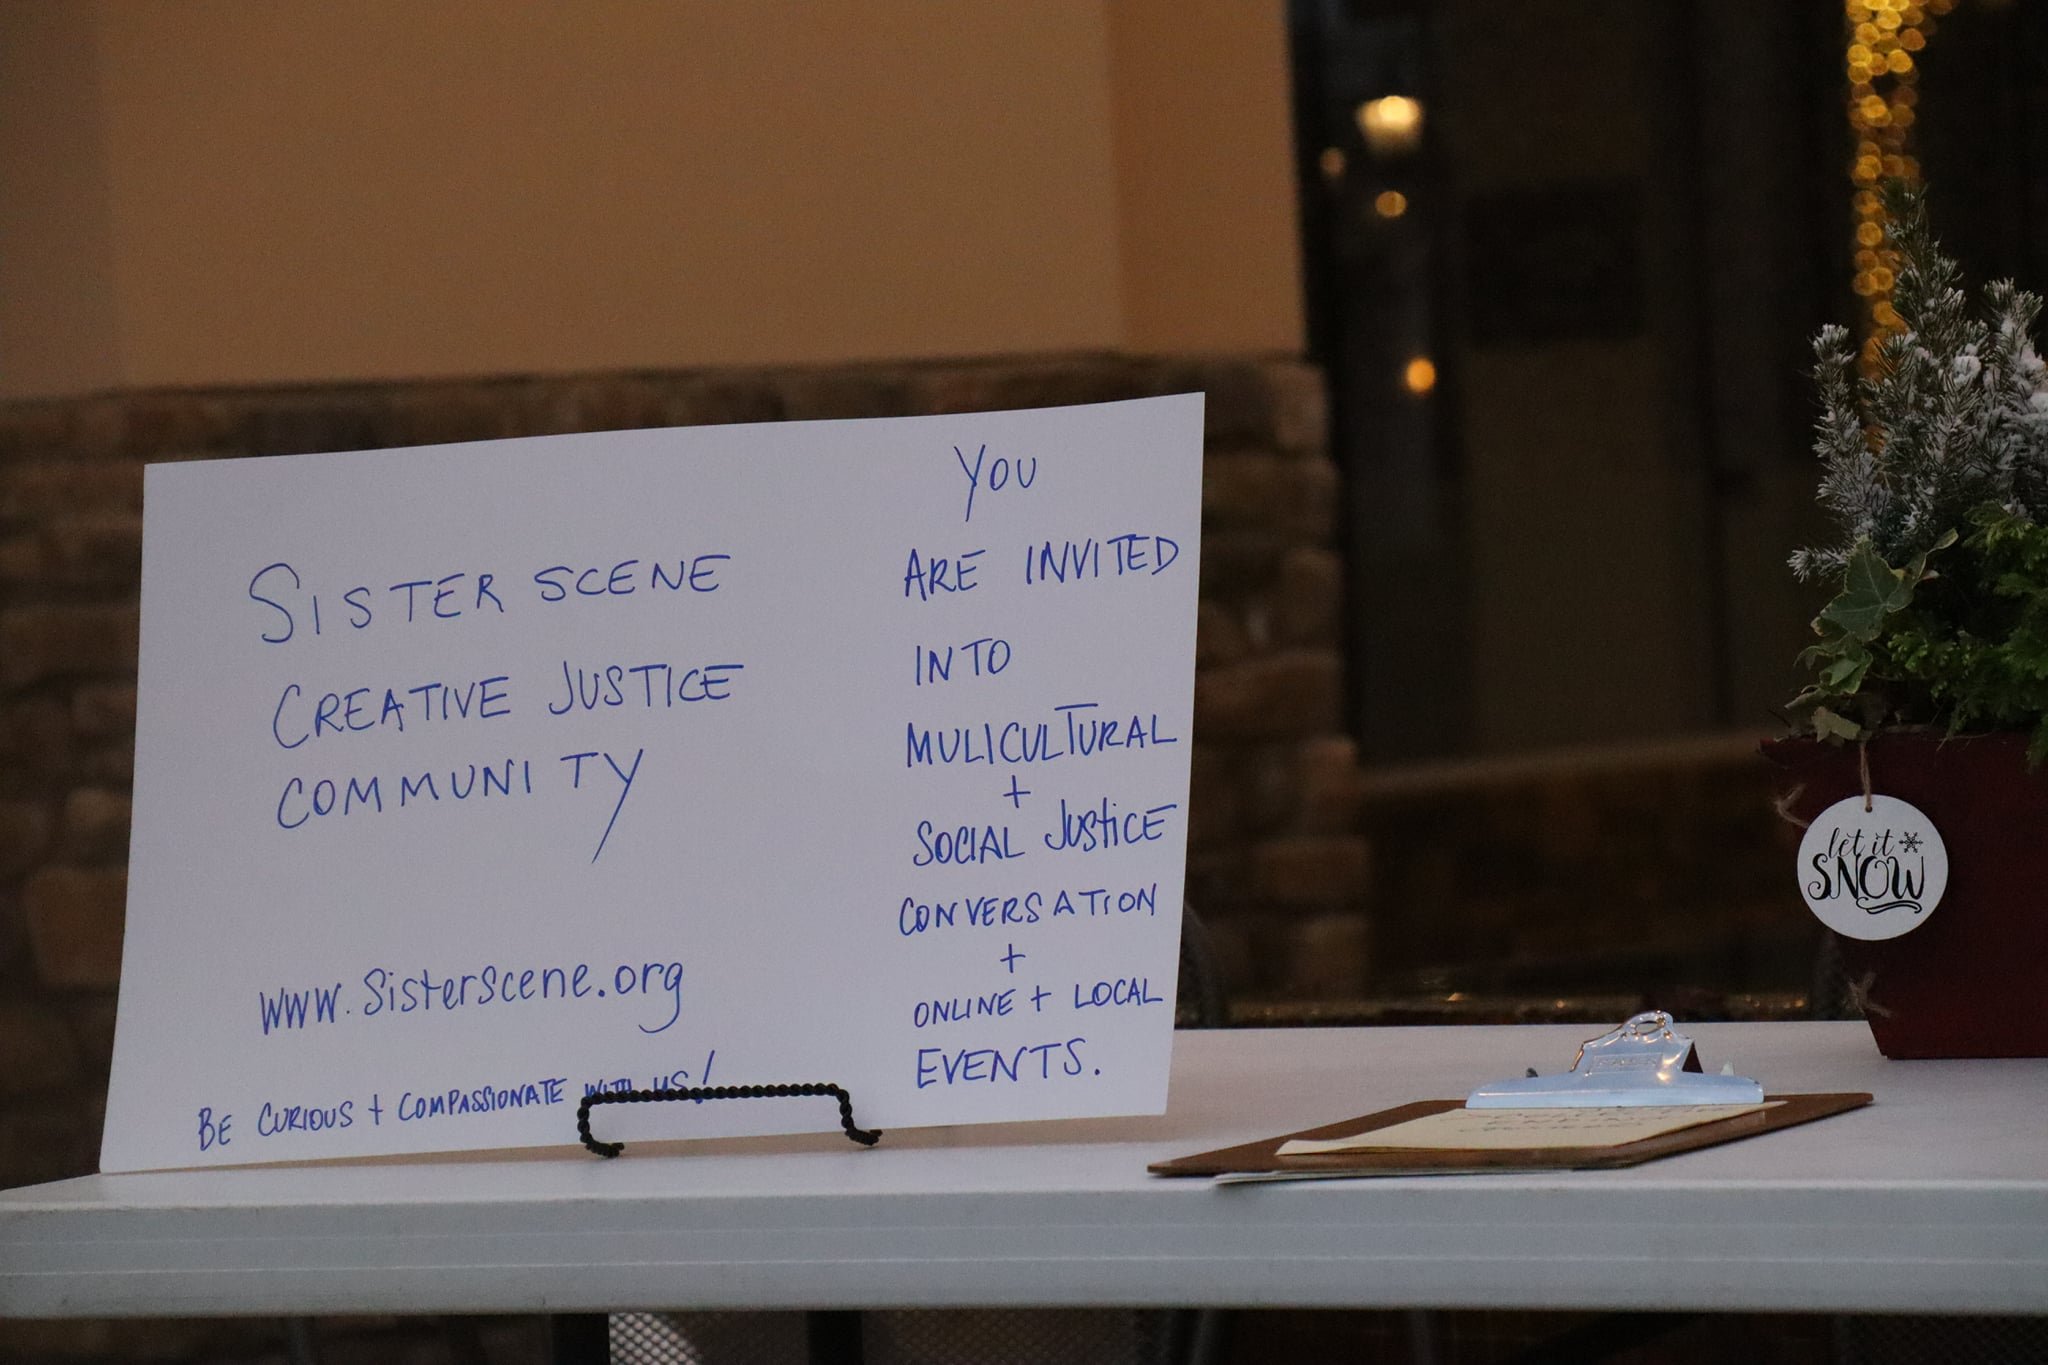 SISTER SCENE
CREATIVE JUSTICE
COMMUNITY
www.SisterScene.org
BE CURIOUS + COMPASSIONATE WITH US!
YOU
ARE INVITED
INTO
MULICULTURAL
+
SOCIAL JUSTICE
CONVERSATION
+
ONLINE + LOCAL
EVENTS.
let it
SNOW